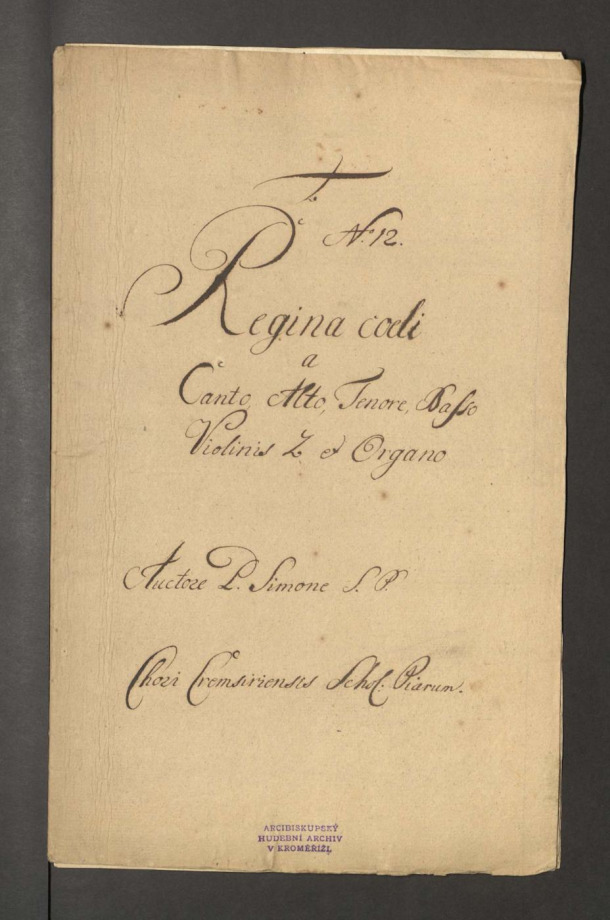 No 12.
Regina coeli
a
Canto, Alto, Tenore, Basso
Violinis 2 et Organo
Auctore P. Simone S. P.
Chori Cremsiriensis Schol. Piarum.
ARCIBISKUPSKÝ
HUDEBNÍ ARCHIV
V KROMĚŘÍŽI